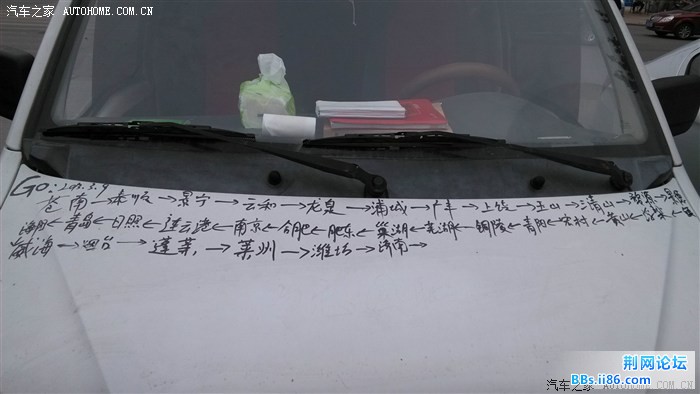 汽车之家 AUTOHOME.COM.CN
Go:
苍南→泰顺→景宁→云和→龙泉→浦城→广丰→上饶→玉山→清山→婺源→
青岛←日照←连云港←南京←合肥←肥东←巢湖←芜湖←铜陵←青阳←宏村←黄山←
威海→烟台→蓬莱→莱州→潍坊→济南→
荆网论坛
BBs.ii86.com
汽车之家 AUTOHOME.COM.CN